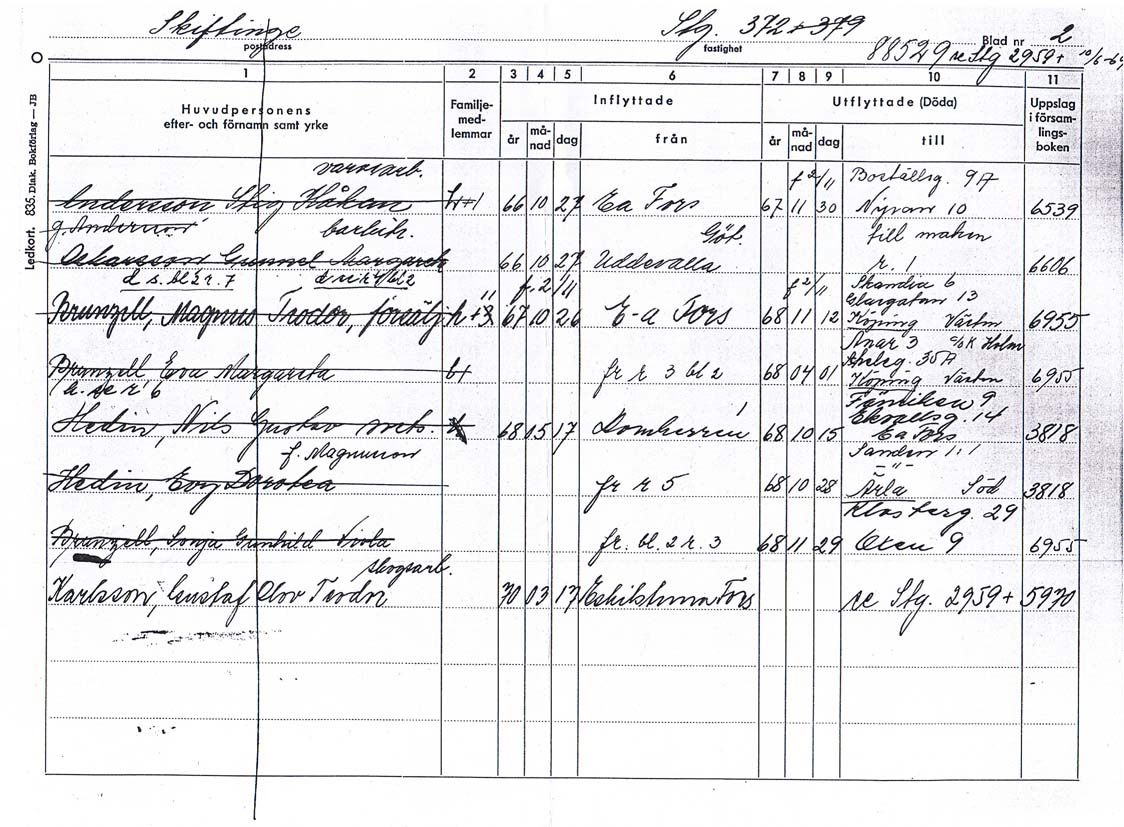 Skiftinge Stg. 372 + 379 Blad nr 2
postadress fastighet 88529 se Stg 2959+ 10/6-69
1 2 3 4 5 6 7 8 9 10 11
Huvudpersonens efter- och förnamn samt yrke
Familje-med-lemmar
Inflyttade
år må-nad dag från
Utflyttade (Döda)
år må-nad dag till
Uppslag i försam-lings-boken
Ledkort. 835. Diak. Bokförlag — JB
varvsarb. f 2/11 Boställsg. 9A
Andersson Stig Håkan h+1 66 10 27 E-a Fors 67 11 30 Nyran 10 6539
g. Andersson barlsk. Göt. till maken
Oskarsson Gunnel Margareta 66 10 27 Uddevalla r. 1 6606
d s. bl 2 r. 7 f. 2/11 f 2/11 Skandia 6
Glasgatan 13
Brunzell, Magnus Teodor, försälj h+3 67 10 26 E-a Fors 68 11 12 Köping Västm 6955
Anar 3 c/o K Holm
Apelsg. 35A
Brunzell Eva Margareta b+ fr r 3 bl 2 68 04 01 Köping Västm 6955
Fänriken 9
Ekvallsg. 14
Hedin, Nils Gustav 68 05 17 Domherren 1 68 10 15 E-a Fors 3818
f. Magnusson Sanden 1:1
Hedin, Evy Dorotea fr r 5 68 10 28 Ärla Söd 3818
Klosterg. 29
Brunzell, Sonja Gunhild Viola fr. bl. 2 r. 3 68 11 29 Eken 9 6955
skogsarb.
Karlsson, Gustaf Olov Teodor 70 03 17 Eskilstuna Fors se Stg. 2959+ 5970